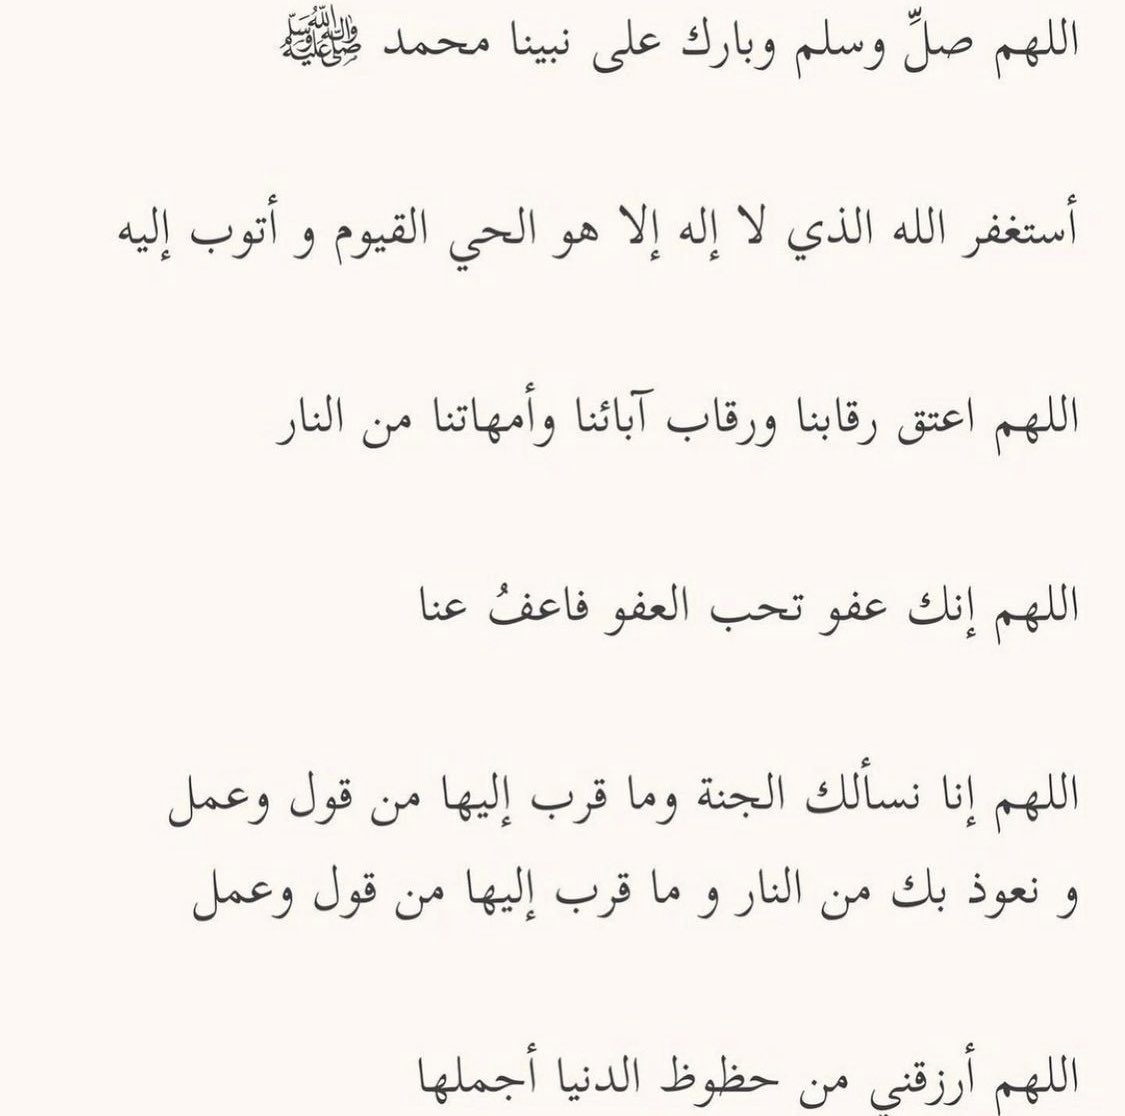 اللهم صلِّ وسلم وبارك على نبينا محمد ﷺ
أستغفر الله الذي لا إله إلا هو الحي القيوم و أتوب إليه
اللهم اعتق رقابنا ورقاب آبائنا وأمهاتنا من النار
اللهم إنك عفو تحب العفو فاعفُ عنا
اللهم إنا نسألك الجنة وما قرب إليها من قول وعمل
و نعوذ بك من النار و ما قرب إليها من قول وعمل
اللهم أرزقني من حظوظ الدنيا أجملها